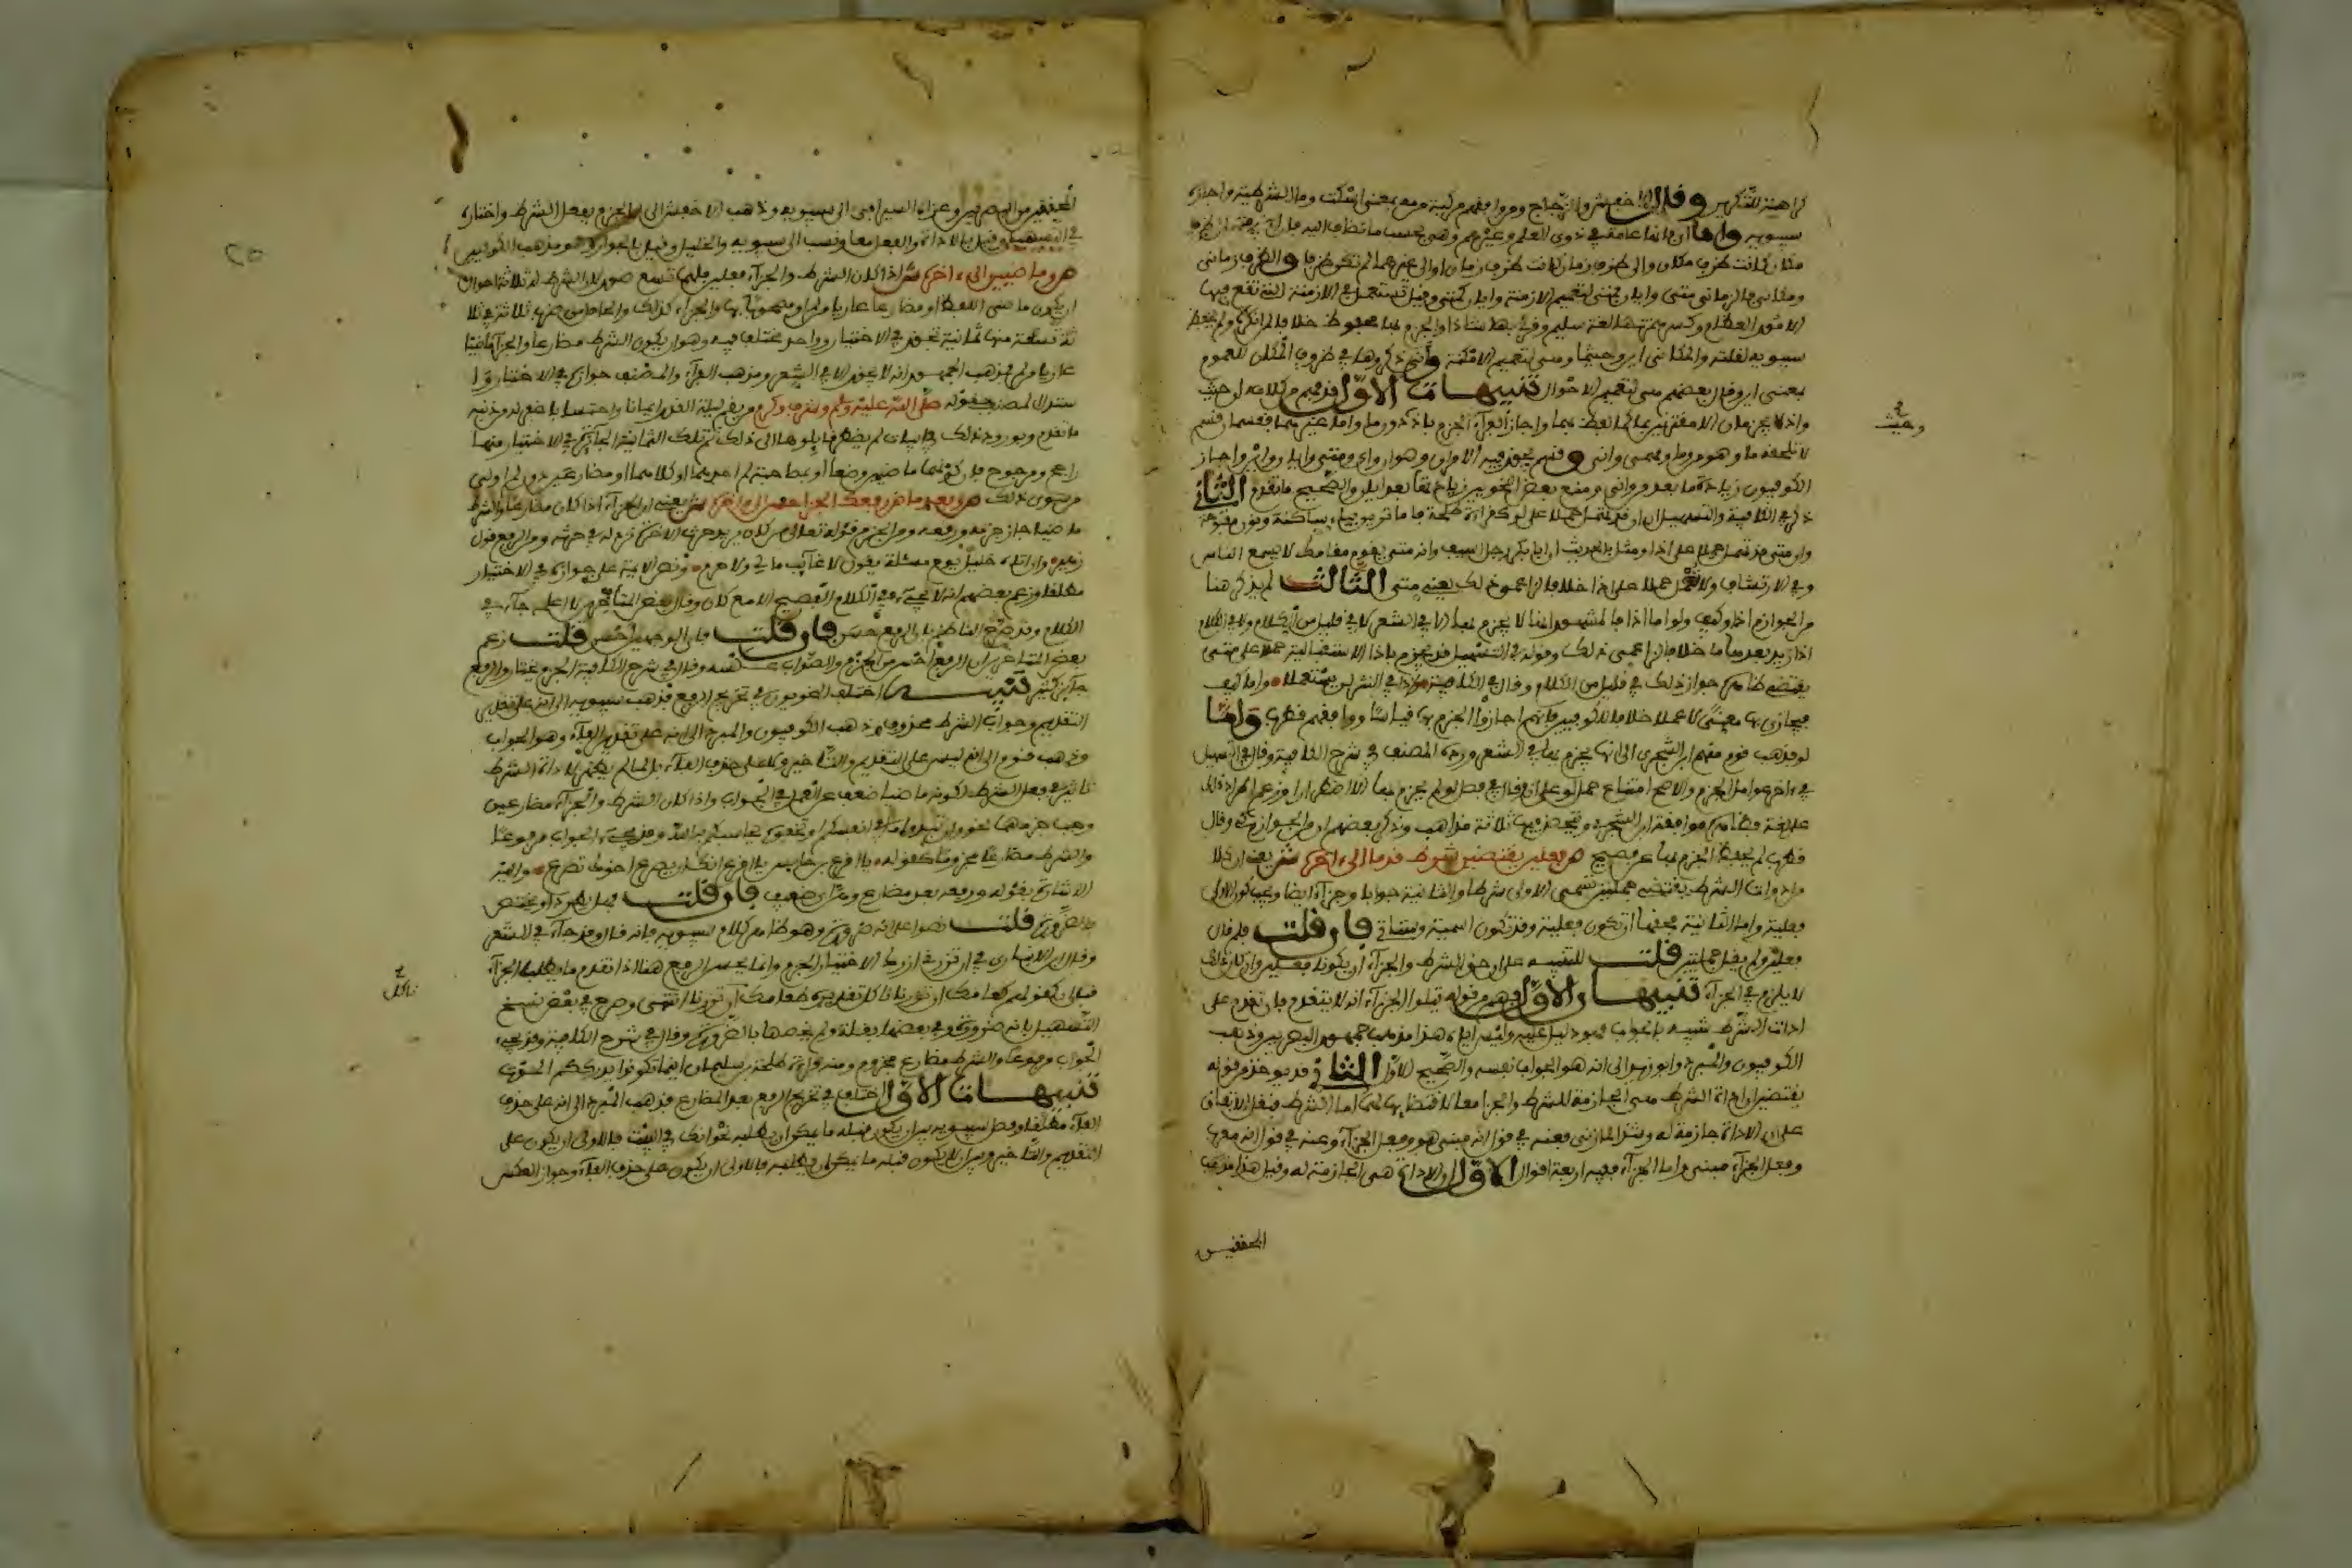 كراهية التكرير وقال الاخفش والزجاج ومن وافقهم مركبة من مه بمعنى اسكت وما الشرطية واجازه
سيبويه واما أي فانها عامة في ذوي العلم وغيرهم وهي بحسب ما تضاف اليه فان اضيفت الى ظرف
مكان كانت ظرف مكان والى ظرف زمان كانت ظرف زمان او الى غيرهما لم تكن ظرفا والظرف زماني
ومكاني فالزماني متى وايان فمتى لتعميم الازمنة وايان كمتى وقيل تستعمل في الازمنة التي تقع فيها
الامور العظام وكسر همزتها لغة سليم وقرئ بها شاذا والجزم بها محفوظ خلافا لمن انكره ولم يحفظه
سيبويه لقلته والمكاني اين وحيثما وهي لتعميم الامكنة وأنى ذكروها في ظروف المكان للعموم
بمعنى اين وقال بعضهم هي لتعميم الاحوال تنبيهات الاول قد فهم من كلامه ان حيث
واذ لا يجزمان الا مقترنين بما كما لفظ بهما واجاز الفراء الجزم باذ دون ما واما غيرهما فقسمان قسم
لا تلحقه ما وهو من وما ومهما وانى وقسم يجوز فيه الامران وهو ان واي ومتى وايان واين واجاز
الكوفيون زيادة ما بعد من وانى ومنع بعض النحويين زيادتها بعد ايان والصحيح ما تقدم الثاني
ذكر في الكافية والتسهيل ان ان قد تهمل حملا على لو كقراءة طلحة فاما ترين بياء ساكنة ونون مفتوحة
وان متى قد تهمل حملا على اذا ومثل بالحديث ان ابا بكر رجل اسيف وانه متى يقوم مقامك لا يسمع الناس
وفي الارتشاف ولا تهمل حملا على اذا خلافا لمن زعم ذلك يعني متى الثالث لم يذكر هنا
من الجوازم اذا وكيف ولو اما اذا فالمشهور انها لا يجزم بها الا في الشعر لا في قليل من الكلام ولا في الكلام
اذا زيد بعدها ما خلافا لزاعمي ذلك وقوله في التسهيل قد يجزم باذا الاستقبالية حملا على متى
يقتضي ظاهره جواز ذلك في قليل من الكلام وقال في الكافية وذا في النثر لن يستعملا واما كيف
فيجازى بها معنى لا عملا خلافا للكوفيين فانهم اجازوا الجزم بها قياسا ووافقهم قطرب واما
لو فذهب قوم منهم ابن الشجري الى انها يجزم بها في الشعر ورده المصنف في شرح الكافية وقال في التسهيل
في اخر عوامل الجزم والاصح امتناع حمل لو على ان وقال في فصل لو لم يجزم بها الا اضطرارا وزعم اطراد ذلك
على لغة فظاهره موافقة ابن الشجري وتحصل فيها ثلاثة مذاهب وذكر بعضهم ان من الجوازم وقال
قطرب لم يحفظ الجزم بها عن فصيح ص فعلين يقتضين شرط قدما الى اخره ش يعني ان كلا
من ادوات الشرط يقتضي جملتين تسمى الاولى شرطا والثانية جوابا وجزاء ايضا ويجب كون الاولى
فعلية واما الثانية فحقها ان تكون فعلية وقد تكون اسمية وستأتي فان قلت فلم قال
فعلين ولم يقل جملتين قلت للتنبيه على ان حق الشرط والجزاء ان يكونا فعلين وان كان ذلك
لا يلزم في الجزاء تنبيهان الاول فهم من قوله يتلو الجزاء انه لا يتقدم فان تقدم على
اداة الشرط شبيه بالجواب فهو دليل عليه وليس اياه هذا مذهب جمهور البصريين وذهب
الكوفيون والمبرد وابو زيد الى انه هو الجواب نفسه والصحيح الاول الثاني قد يوخذ من قوله
يقتضين ان اداة الشرط هي الجازمة للشرط والجزاء معا لاقتضائها لهما اما الشرط فنقل الاتفاق
على ان الاداة جازمة له وشذ المازني فعنه في قول انه مبني هو وفعل الجزاء وعنه في قول انه معرب
وفعل الجزاء مبني واما الجزاء ففيه اربعة اقوال الاول ان الاداة هي الجازمة له وقيل هذا مذهب
المحققين
وحيث
المحققين من البصريين وعزاه السيرافي الى سيبويه وذهب الاخفش الى ان الجزم بفعل الشرط واختاره
في التسهيل وقيل بالاداة والفعل معا ونسب الى سيبويه والخليل وقيل بالجوار وهو مذهب الكوفيين
ص وماضيين الى اخره ش اذا كان الشرط والجزاء فعلين فلهما تسع صور لان الشرط له ثلاثة احوال
ان يكون ماضي اللفظ او مضارعا عاريا من لم او مصحوبا بها والجزاء كذلك والحاصل من ضرب ثلاثة في ثلا
ثة تسعة منها ثمانية تجوز في الاختيار وواحد مختلف فيه وهو ان يكون الشرط مضارعا والجزاء ماضيا
عاريا من لم فمذهب الجمهور انه لا يجوز الا في الشعر ومذهب الفراء والمصنف جوازه في الاختيار وا
ستدل المصنف بقوله صلى الله عليه وسلم وشرف وكرم من يقم ليلة القدر ايمانا واحتسابا غفر له من ذنبه
راجح ومرجوح
من سوى ذلك ص وبعد ماض رفعك الجزا حسن الى اخره ش يعني ان الجزاء اذا كان مضارعا والشرط
ماضيا جاز جزمه ورفعه ومن الجزم قوله تعالى من كان يريد حرث الاخرة نزد له في حرثه ومن الرفع قول
زهير وان اتاه خليل يوم مسئلة يقول لا غائب مالي ولا حرم ونص الايمة على جوازه في الاختيار
مطلقا وزعم بعضهم انه لا يجيء في الكلام الفصيح الا مع كان وقال بعض المتأخرين لا اعلمه جاء في
الكلام وقد صرح الناظم بان الرفع حسن فان قلت فاي الوجهين احسن قلت زعم
بعض المتاخرين ان الرفع احسن من الجزم والصواب عكسه وقال في شرح الكافية الجزم مختار والرفع
جائز كثير تنبيه اختلف النحويون في تخريج الرفع فذهب سيبويه الى انه على تقدير
التقديم وجواب الشرط محذوف وذهب الكوفيون والمبرد الى انه على تقدير الفاء وهو الجواب
وذهب قوم الى انه ليس على التقديم والتأخير ولا على حذف الفاء بل لما لم يظهر لاداة الشرط
تاثير في فعل الشرط لكونه ماضيا ضعفت عن العمل في الجواب واذا كان الشرط والجزاء مضارعين
وجب جزمهما نحو وان تبدوا ما في انفسكم او تخفوه يحاسبكم به الله وقد يجيء الجواب مرفوعا
والشرط مضارعا مجزوما كقوله يا اقرع بن حابس يا اقرع انك ان يصرع اخوك تصرع واليه
الاشارة بقوله ورفعه بعد مضارع وهن اي ضعف فان قلت فهل يطرد او يختص
بالضرورة قلت نصوا على انه ضرورة وهو ظاهر كلام سيبويه فانه قال وقد جاء في الشعر
وقال ابن الانباري في ان تزرني ازورك الاختيار الجزم وانما يحسن الرفع هنا اذا تقدم ما يطلب الجزاء
قبل ان كقولهم طعامك ان تزرنا ناكل تقديره طعامك ناكل ان تزرنا انتهى وصرح في بعض نسخ
التسهيل بانه ضرورة وفي بعضها بقلة ولم يخصها بالضرورة وقال في شرح الكافية وقد يجيء
الجواب مرفوعا والشرط مضارع مجزوم ومنه قراءة طلحة بن سليمان اينما تكونوا يدرككم الموت
تنبيهات الاول اختلف في تخريج الرفع بعد المضارع فذهب المبرد الى انه على حذف
الفاء مطلقا وفصل سيبويه بين ان يكون قبله ما يمكن ان يطلبه نحو انك في البيت فالاولى ان يكون على
التقديم والتأخير وبين ان لا يكون قبله ما يمكن ان يطلبه فالاولى ان يكون على حذف الفاء وجوز العكس
ناكل